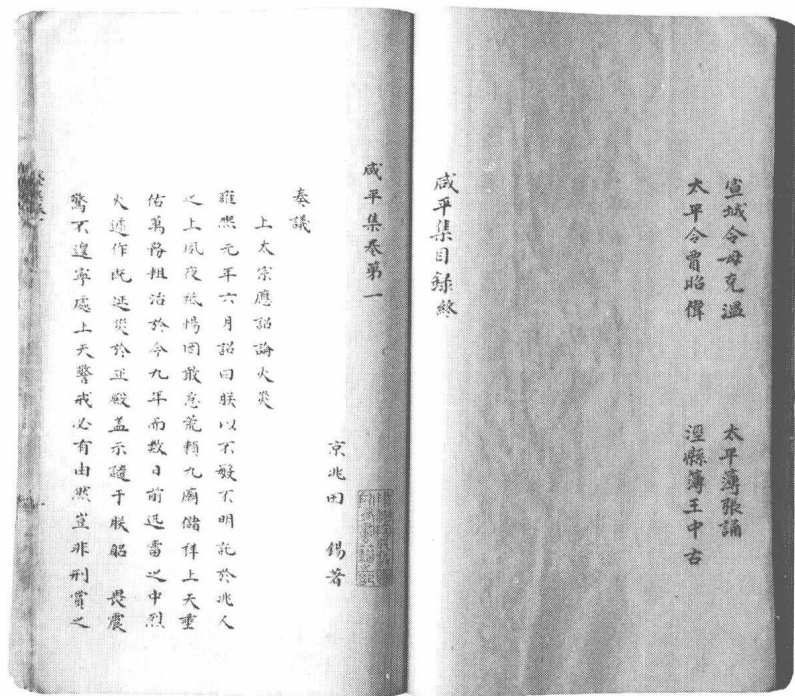 宣城令毋克溫
太平簿張誦
太平令賈昭偉
涇縣簿王中古
咸平集目錄終
咸平集卷第一
京兆田 錫著
奏議
上太宗應詔論火災
雍熙元年六月詔曰朕以不敏不明託於兆人
之上夙夜祗惕罔敢怠荒賴九廟儲祥上天垂
佑萬務粗治於今九年而數日前迅雷之中烈
火遽作既延災於正殿蓋示譴于朕躬 畏震
驚不遑寧處上天警戒必有由然豈非刑賞之